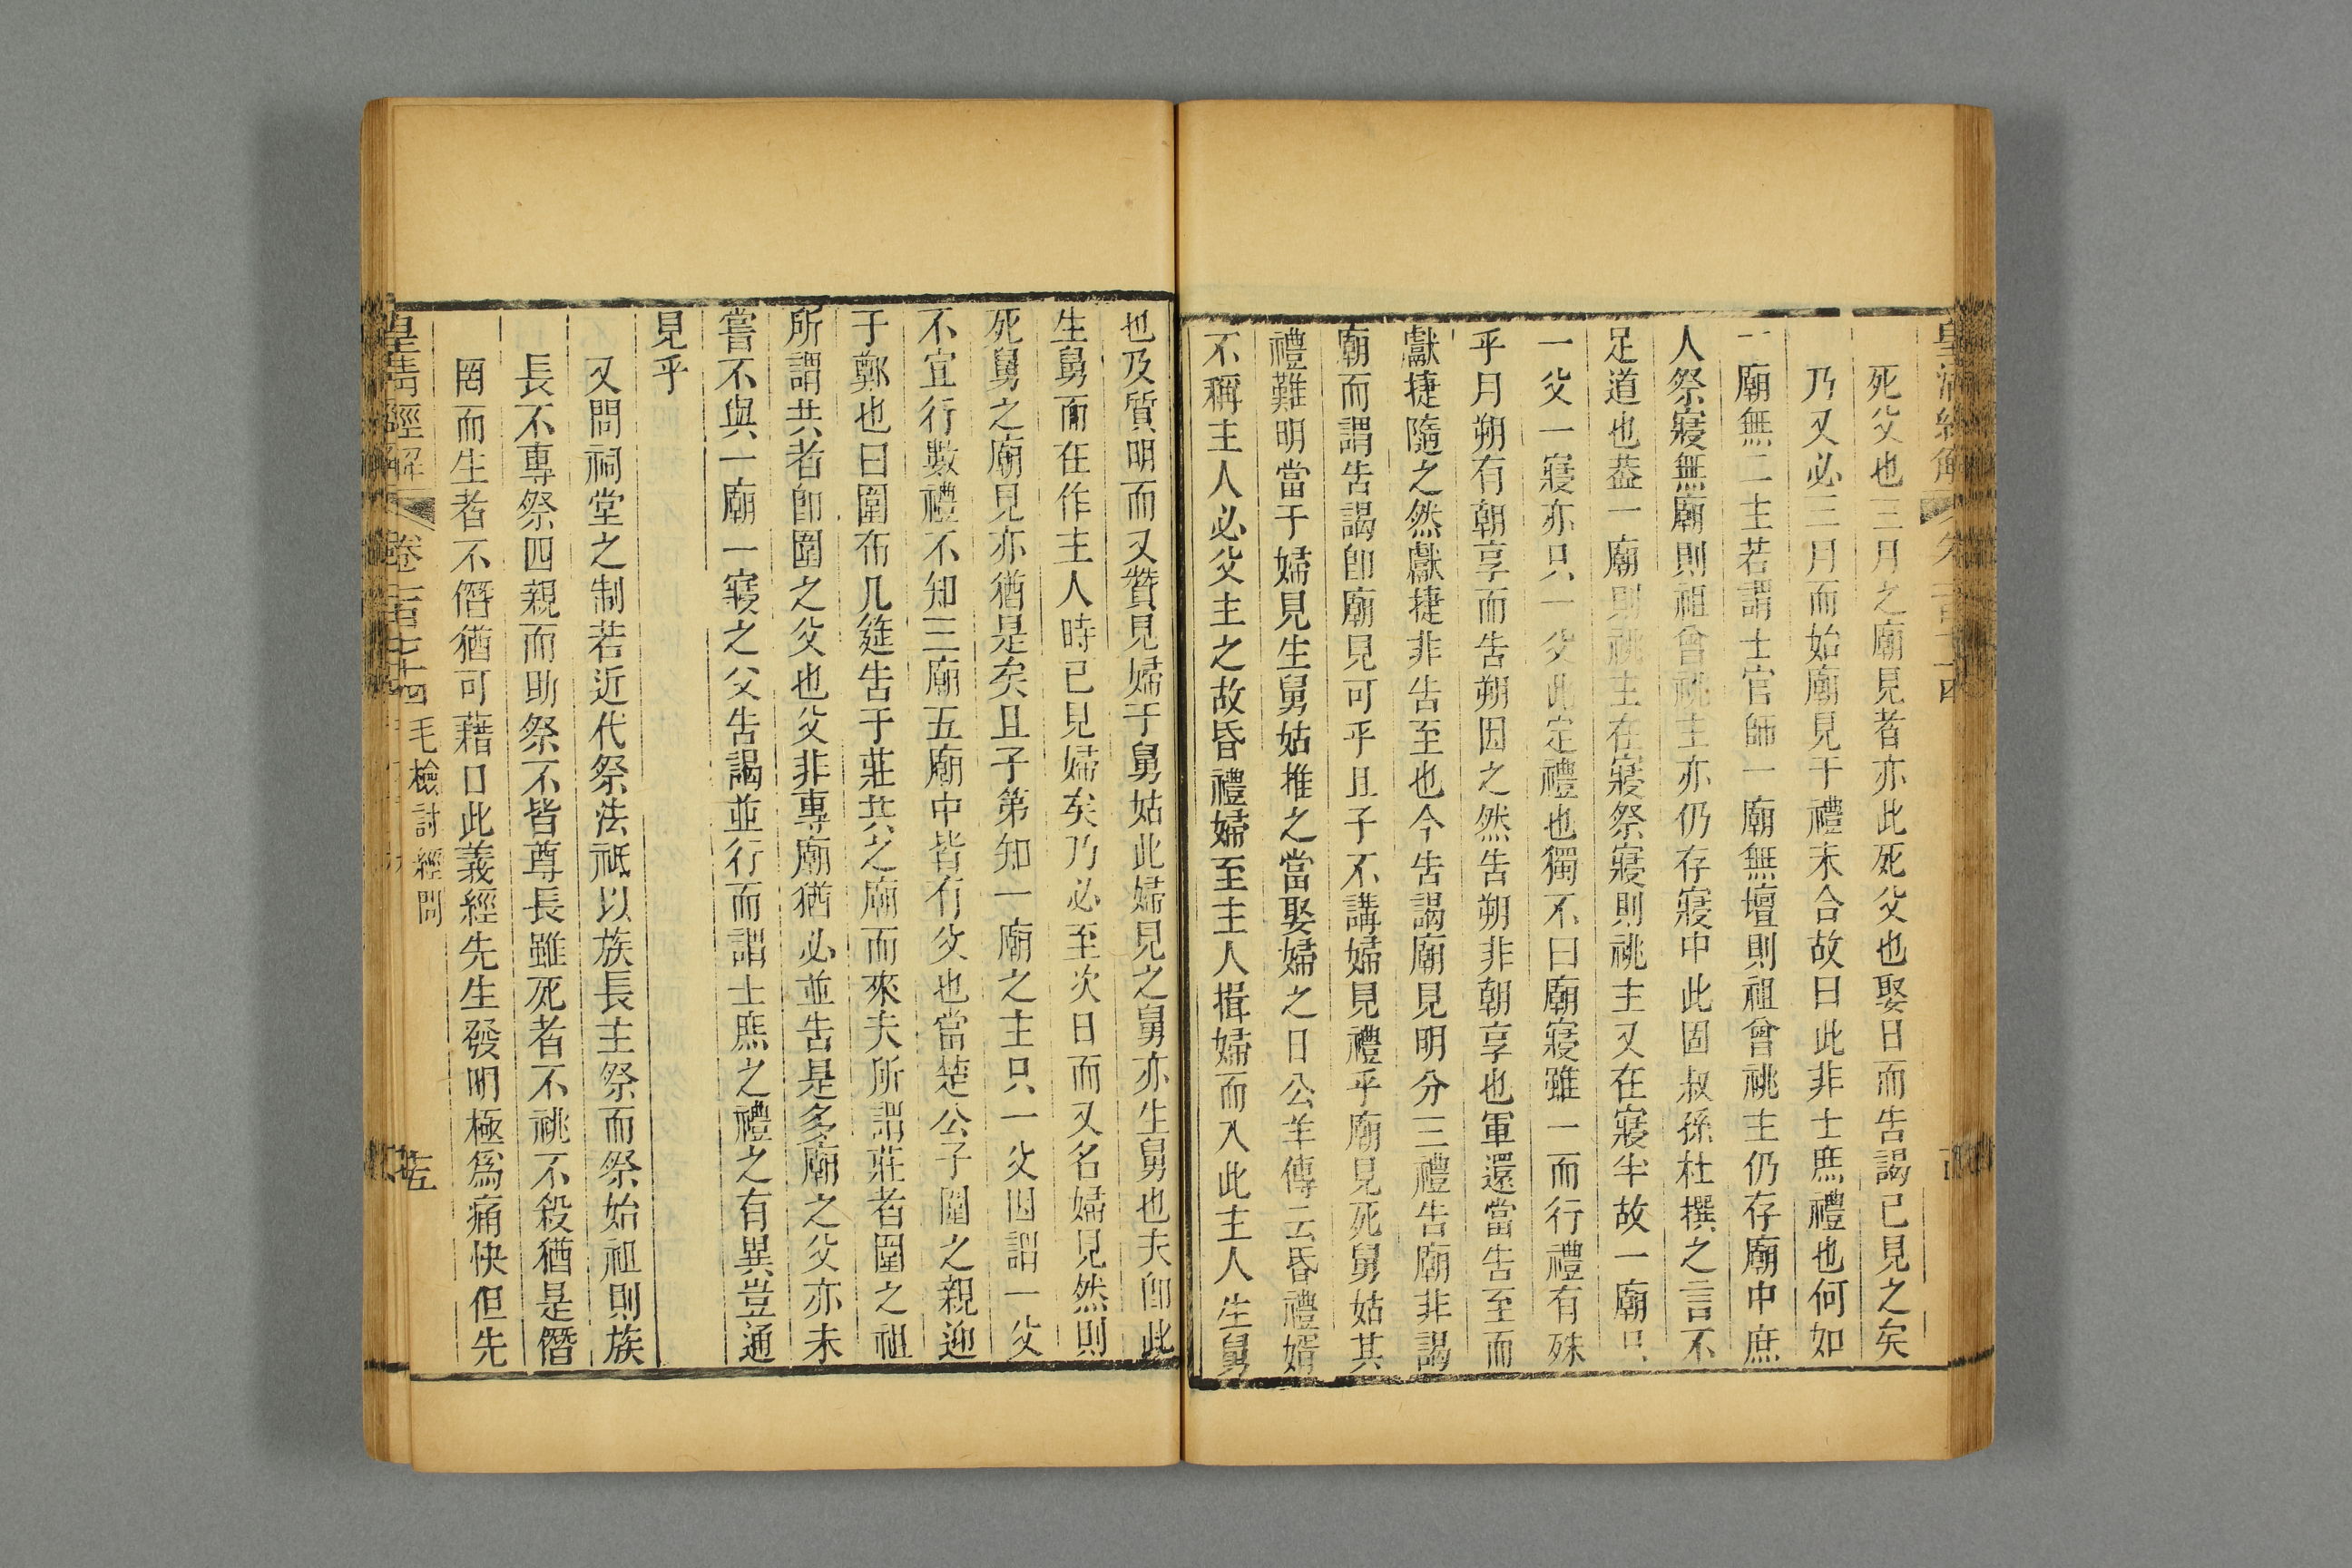 死父也三月之廟見者亦此死父也娶日而告謁已見之矣
乃又必三月而始廟見于禮未合故曰此非士庶禮也何如
一廟無二主若謂士官師一廟無壇則祖曾祧主仍存廟中庶
人祭寢無廟則祖曾祧主亦仍存寢中此固叔孫杜撰之言不
足道也葢一廟則祧主在寢祭寢則祧主又在寢半故一廟只
一父一寢亦只一父此定禮也獨不曰廟寢雖一而行禮有殊
乎月朔有朝享而告朔因之然告朔非朝享也軍還當告至而
獻捷隨之然獻捷非告至也今告謁廟見明分三禮告廟非謁
廟而謂告謁卽廟見可乎且子不講婦見禮乎廟見死舅姑其
禮難明當于婦見生舅姑推之當娶婦之日公羊傳云昏禮婿
不稱主人必父主之故昏禮婦至主人揖婦而入此主人生舅
也及質明而又贊見婦于舅姑此婦見之舅亦生舅也夫卽此
生舅而在作主人時已見婦矣乃必至次日而又名婦見然則
死舅之廟見亦猶是矣且子第知一廟之主只一父因謂一父
不宜行數禮不知三廟五廟中皆有父也當楚公子圍之親迎
于鄭也曰圍布几筵告于莊共之廟而來夫所謂莊者圍之祖
所謂共者卽圍之父也父非專廟猶必並告是多廟之父亦未
嘗不與一廟一寢之父告謁並行而謂士庶之禮之有異豈通
見乎
又問祠堂之制若近代祭法祗以族長主祭而祭始祖則族
長不專祭四親而助祭不皆尊長雖死者不祧不殺猶是僭
罔而生者不僭猶可藉口此義經先生發明極爲痛快但先
皇清經解
卷一百七十四
毛檢討經問